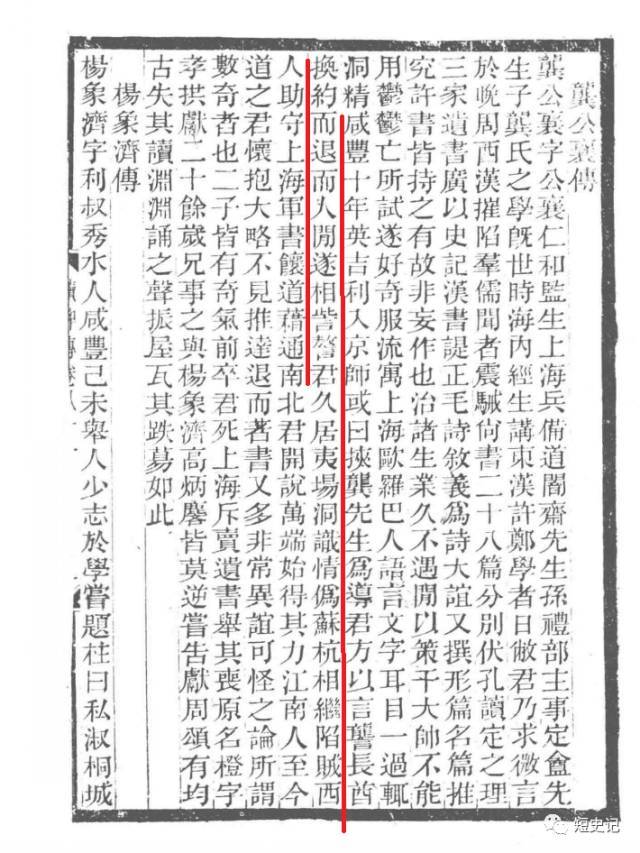 龔公襄傳
龔公襄字公襄仁和監生上海兵備道闇齋先生孫禮部主事定盦先
生子龔氏之學旣世時海內經生講東漢許鄭學者日敝君乃求微言
於晚周西漢摧陷羣儒聞者震駴尙書二十八篇分別伏孔讀定之理
三家遺書廣以史記漢書諟正毛詩敘義爲詩大誼又撰形篇名篇推
究許書皆持之有故非妄作也治諸生業久不遇閒以策干大帥不能
用鬱鬱亡所試遂好奇服流寓上海歐羅巴人語言文字耳目一過輒
洞精咸豐十年英吉利入京師或曰挾龔先生爲導君方以言讋長酋
換約而退而人閒遂相訾謷君久居夷場洞識情僞蘇杭相繼陷賊西
人助守上海軍書饟道藉通南北君開說萬端始得其力江南人至今
道之君懷抱大略不見推達退而著書又多非常異誼可怪之論所謂
數奇者也二子皆有奇氣前卒君死上海斥賣遺書舉其喪原名橙字
孝拱獻二十餘歲兄事之與楊象濟高炳麐皆莫逆嘗告獻周頌有均
古失其讀淵淵誦之聲振屋瓦其跌蕩如此
楊象濟傳
楊象濟字利叔秀水人咸豐己未舉人少志於學嘗題柱曰私淑桐城
短史记